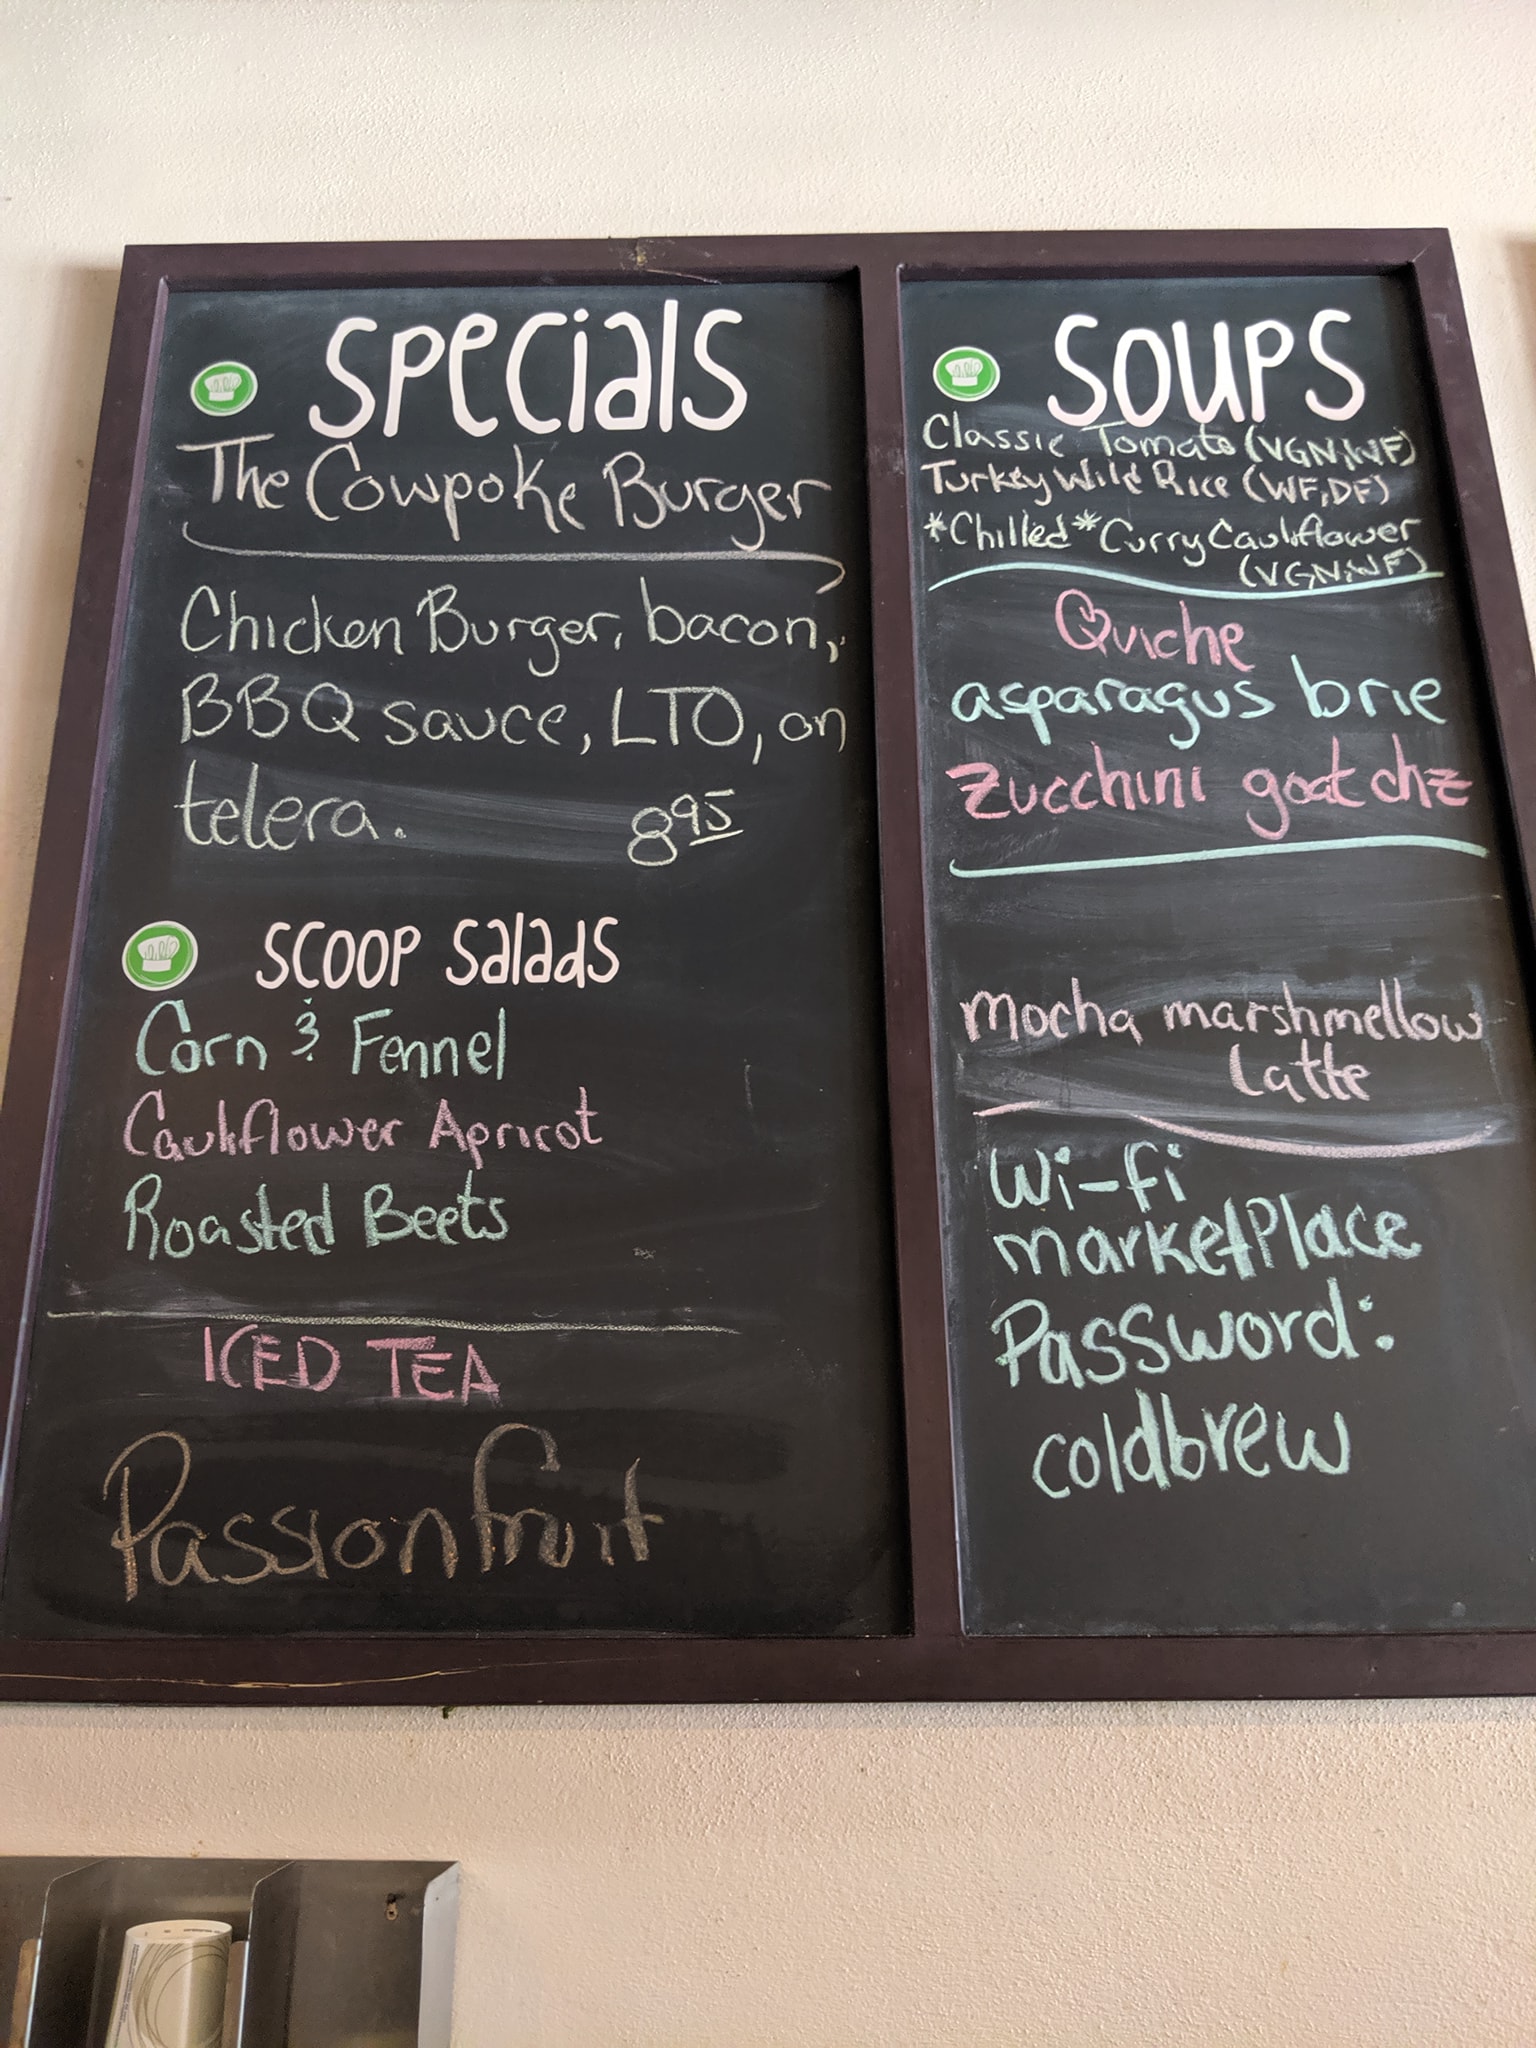 Specials
The Cowpoke Burger
Chicken Burger, bacon,
BBQ sauce, LTO, on
telera. 8.95
Scoop Salads
Corn & Fennel
Cauliflower Apricot
Roasted Beets
ICED TEA
Passionfruit
Soups
Classic Tomato (VGN,WF)
Turkey Wild Rice (WF,DF)
*Chilled* Curry Cauliflower
(VGN,WF)
Quiche
asparagus brie
zucchini goat chz
mocha marshmellow
Latte
Wi-fi
marketPlace
Password:
coldbrew